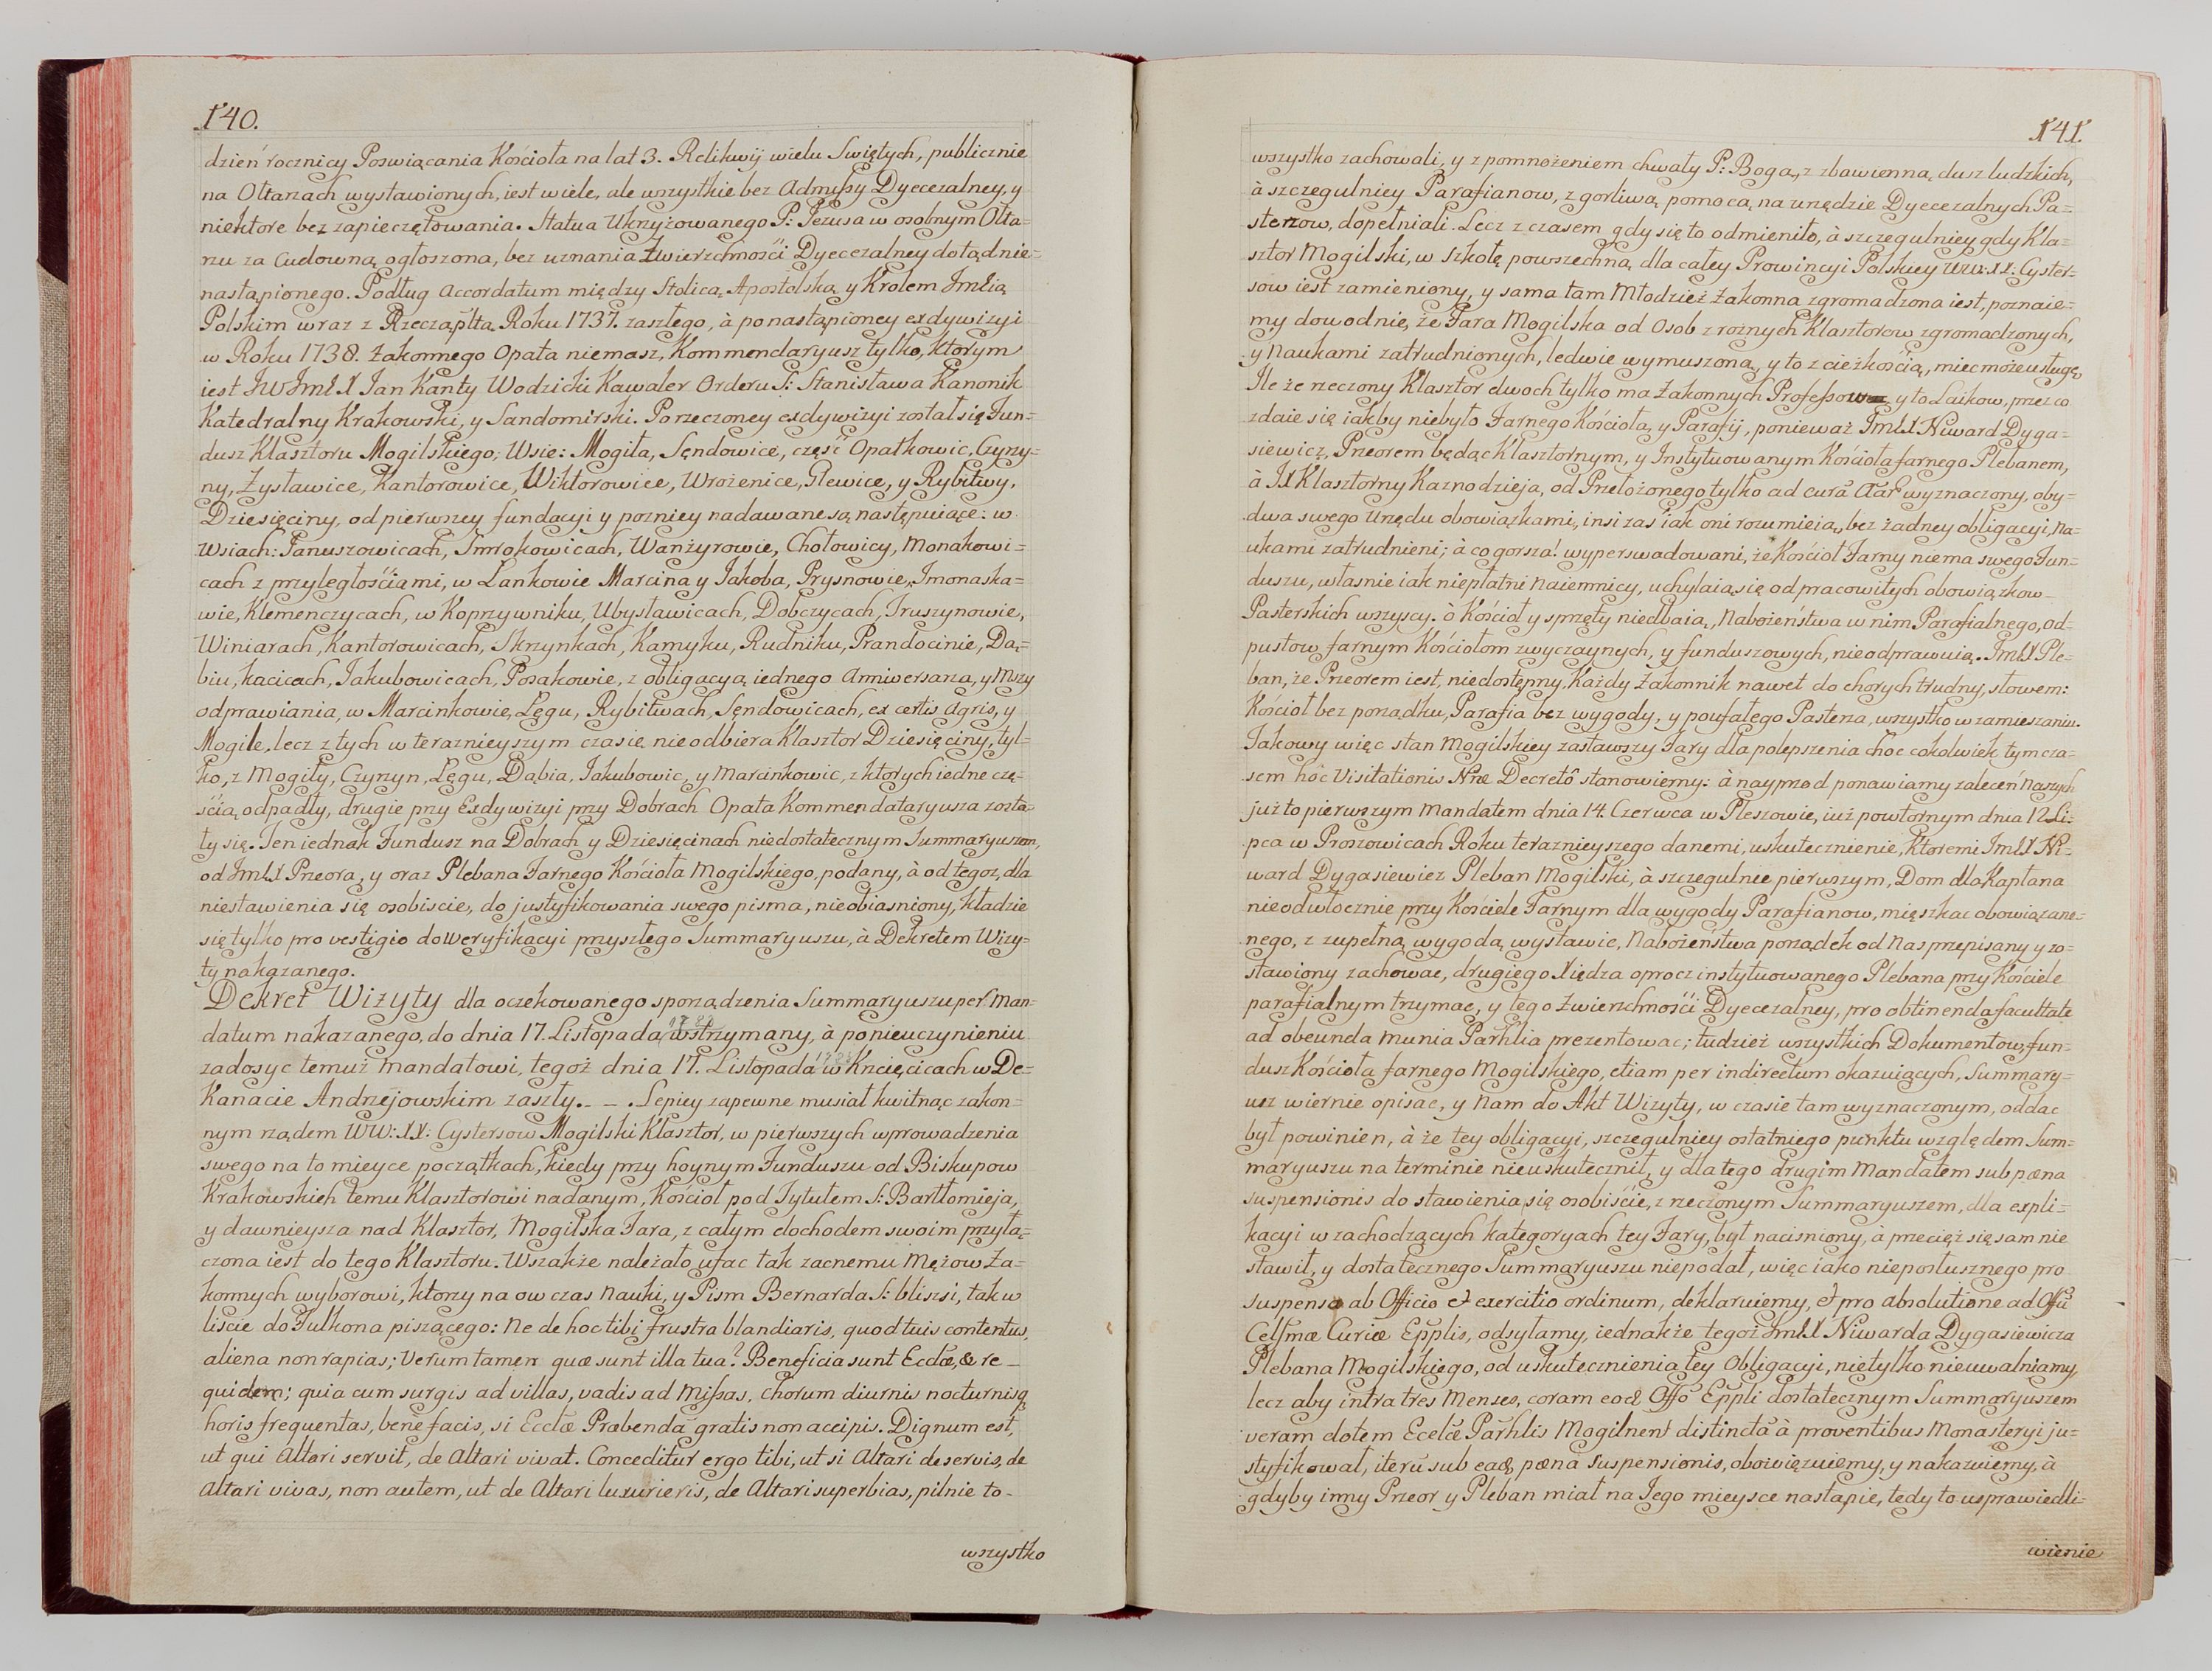 140.
dzień rocznicy Poswiącania Kościoła na lat 3. Relikwij wielu Swiętych, publicznie
na Ołtarzach wystawionych, iest wiele, ale wszystkie bez Admissy Dyecezalney, y
niektore bez zapieczętowania. Statua Ukrzyżowanego P: Jezusa w osobnym Ołta=
rzu za Cudowną ogłoszona, bez uznania Zwierzchności Dyecezalney dotąd nie=
nastąpionego. Podług accordatum między Stolicą Apostolską y Krolem Jmlią
Polskim wraz z Rzecząpltą Roku 1737. zaszłego, à po nastąpioney exdywizyi
w Roku 1738. Zakonnego Opata niemasz, Kommendaryusz tylko, ktorym
iest JWJmlX Jan Kanty Wodzicki Kawaler Orderu S: Stanisława Kanonik
Katedralny Krakowski, y Sandomirski. Po rzeczoney exdywizyi został się Fun=
dusz Klasztoru Mogilskiego; Wsie: Mogiła, Sęndowice, część Opatkowic, Czyzy=
ny, Zysławice, Kantorowice, Wiktorowice, Wrożenice, Glewice, y Rybitwy.
Dziesięciny, od pierwszey fundacyi y pozniey nadawane są następuiące: w
Wsiach: Januszowicach, Smrokowicach, Wanżyrowie, Chotowicy, Monakowi=
cach z przyległościami, w Lankowie Marcina y Jakoba, Prysnowie, Jmonaska=
wie, Klemenczycach, w Koprzywniku, Ubysławicach, Dobczycach, Truszynowie,
Winiarach, Kantorowicach, Skrzynkach, Kamyku, Rudniku, Prandocinie, Dą=
biu, kacicach, Jakubowicach, Posakowie, z obligacyą iednego Anniwersarza, y Mszy
odprawiania, w Marcinkowie, Lęgu, Rybitwach, Sęndowicach, ex certis agris, y
Mogile, lecz z tych w teraznieyszym czasie nieodbiera Klasztor Dziesięciny, tyl=
ko, z Mogiły, Czyzyn, Lęgu, Dąbia, Jakubowic, y Marcinkowic, z ktorych iedne czę=
ścią odpadły, drugie przy Exdywizyi przy Dobrach Opata Kommendataryusza zosta=
ły się. Ten iednak Fundusz na Dobrach y Dziesięcinach niedostatecznym Summaryuszem,
od JmlX Przeora, y oraz Plebana Farnego Kościoła Mogilskiego, podany, à od tegoz, dla
niestawienia się osobiscie, do justyfikowania swego pisma, nieobiasniony, kładzie
się tylko pro vestigio do Weryfikacyi przyszłego Summaryuszu, à Dekretem Wizy=
ty nakazanego.
Dekret Wizyty dla oczekowanego sporządzenia Summaryuszu per Man=
datum nakazanego, do dnia 17. Listopada wstrzymany, à po nieuczynieniu
zadosyc temuż mandatowi, tegoż dnia 17. Listopada w Kncięcicach w De=
Kanacie Andrzejowskim zaszły. _ _ . Lepiey zapewne musiał kwitnąc zakon=
nym rządem WW: XX: Cystersow Mogilski Klasztor, w pierwszych wprowadzenia
swego na to mieyce początkach, kiedy przy hoynym Funduszu od Biskupow
Krakowskich temu Klasztorowi nadanym, Kościoł pod Tytułem S: Bartłomieja,
y dawnieysza nad Klasztor, Mogilska Fara, z całym dochodem swoim przyłą=
czona iest do tego Klasztoru. Wszakże należało ufac tak zacnemu Mężow Za=
konnych wyborowi, ktorzy na ow czas Nauki, y Pism Bernarda S: bliszsi, tak w
liscie do Fulkona piszącego: Ne de hoc tibi frustra blandiaris, quod tuis contentus,
aliena non rapias; Verum tamen quæ sunt illa tua? Beneficia sunt Eccłæ, & re _
quidem; quia cum surgis ad villas, vadis ad Missas, Chorum diurnis nocturnisq
horis frequentas, bene facis, si Eccłæ Præbendā gratis non accipis. Dignum est,
ut qui Altari servit, de Altari vivat. Conceditur ergo tibi, ut si Altari deservis, de
Altari vivas, non autem, ut de Altari luxurieris, de Altari superbias, pilnie to _
wszystko
141.
wszystko zachowali, y z pomnożeniem chwały P: Boga, z zbawienną dusz ludzkich,
à szczegulniey Parafianow, z gorliwą pomocą na urzędzie Dyecezalnych Pa=
sterzow, dopełniali. Lecz z czasem gdy się to odmieniło, à szczegulniey gdy Kla=
sztor Mogilski, w Szkołę powszechną dla całey Prowincyi Polskiey WW: XX: Cyster=
sow iest zamieniony, y sama tam Młodzież Zakonna zgromadzona iest, poznaie=
my dowodnie, że Fara Mogilska od Osob z rożnych Klasztorow zgromadzonych,
y Naukami zatrudnionych, ledwie wymuszoną, y to z cieżkością, miec może usługę,
Ile że rzeczony Klasztor dwoch tylko ma Zakonnych Professow y to Laikow, przez co
zdaie się iakby niebyło Farnego Kościoła, y Parafij, ponieważ JmlX Niward Dyga=
siewicz, Przeorem będąc Klasztornym, y Instytuowanym Kościoła farnego Plebanem,
à JX Klasztorny Kaznodzieja, od Przełożonego tylko ad curā wyznaczony, oby=
dwa swego Urzędu obowiązkami, insi zas iak oni rozumieią, bez żadney obligacyi, Na=
ukami zatrudnieni; à co gorsza! wyperswadowani, że Kościoł Farny niema swego Fun=
duszu, własnie iak niepłatni Naiemnicy, uchylaią się od pracowitych obowiązkow _
Pasterskich wszyscy. ò Kościoł y sprzęty niedbaią, Nabożeństwa w nim Parafialnego, od=
pustow farnym Kościołom zwyczaynych, y funduszowych, nieodprawuią. JmlX Ple=
ban, że Przeorem iest, niedostępny, Każdy Zakonnik nawet do chorych trudny, słowem:
Kościoł bez porządku, Parafia bez wygody, y poufałego Pasterza, wszystko w zamieszaniu.
Takowy więc stan Mogilskiey zastawszy Fary dla polepszenia choc cokolwiek tymcza=
sem hôc Visitationis Nræ Decretô stanowiemy: à nayprzod ponawiamy zaleceń Naszych
już to pierwszym Mandatem dnia 14. Czerwca w Pleszowie, iuż powtornym dnia 12 Li=
pca w Proszowicach Roku teraznieyszego danemi, uskutecznienie, ktoremi JmlX Ni=
ward Dygasiewicz Pleban Mogilski, à szczegulnie pierwszym, Dom dla Kapłana
nieodwłocznie przy Kosciele Farnym dla wygody Parafianow, mięszkac obowiązane=
nego, z zupełną wygodą wystawic, Nabożeństwa porządek od Nas przepisany y zo=
stawiony zachowac, drugiego Xiędza oprocz instytuowanego Plebana przy Kościele
parafialnym trzymac, y tego Zwierzchności Dyecezalney, pro obtinenda facultate
ad obeunda munia Parhlia prezentowac; tudzież wszystkich Dokumentow, fun=
dusz Kościoła farnego Mogilskiego, etiam per indirectum okazuiących, Summary=
usz wiernie opisac, y Nam do Akt Wizyty, w czasie tam wyznaczonym, oddac
był powinien, à że tey obligacyi, szczegulniey ostatniego punktu względem Sum=
maryuszu na terminie nieuskutecznił, y dlatego drugim Mandatem sub pæna
suspensionis do stawienia się osobiście, z rzeczonym Summaryuszem, dla expli=
kacyi w zachodzących kategoryach tey Fary, był nacisniony, à przecięż się sam nie
stawił, y dostatecznego Summaryuszu niepodał, więc iako nieposłusznego pro
suspenso ab Officio et exercitio ordinum, deklaruiemy, et pro absolutione ad Offū
Celsmæ Curiæ Epplis, odsyłamy, iednakże tegoż JmlX Niwarda Dygasiewicza
Plebana Mogilskiego, od uskutecznienia tey Obligacyi, nietylko nieuwalniamy,
lecz aby intra tres Menses, coram eod Offō Eppli dostatecznym Summaryuszem
veram dotem Eccłæ Parhlis Mogilnens distinctā à proventibus Monasteryi ju=
styfikował, iterū sub eadē pæna suspensionis, obowięzuiemy, y nakazuiemy, à
gdyby inny Przeor y Pleban miał na Jego mieysce nastąpic, tedy to usprawiedli=
wienie